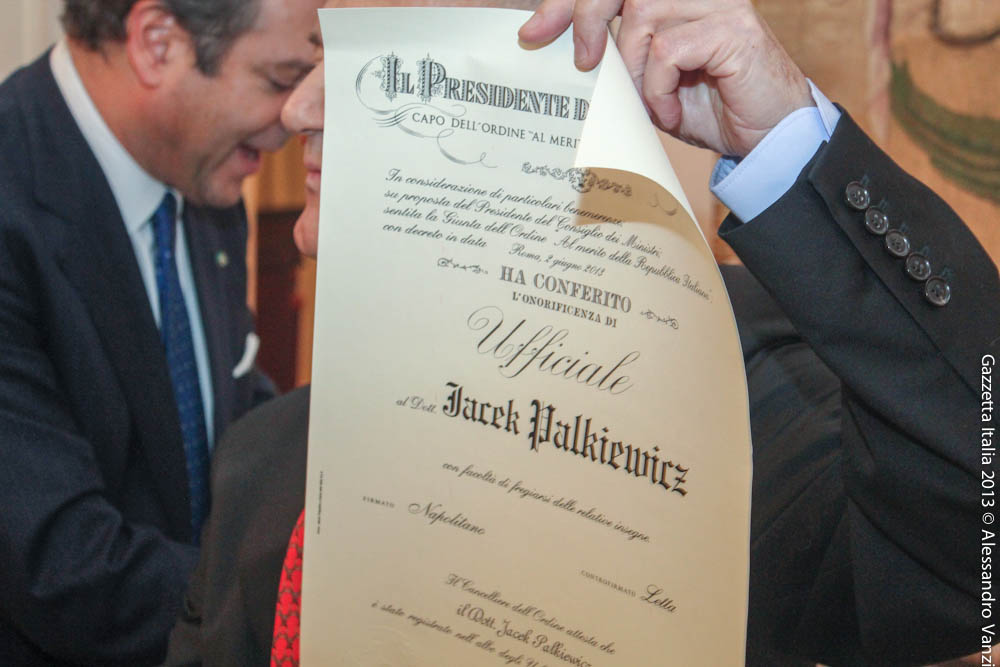 IL PRESIDENTE D
CAPO DELL'ORDINE "AL MERIT
In considerazione di particolari benemerenze;
su proposta del Presidente del Consiglio dei Ministri;
sentita la Giunta dell'Ordine "Al merito della Repubblica Italiana";
con decreto in data Roma, 2 giugno 2013
HA CONFERITO
L'ONORIFICENZA DI
Ufficiale
al Dott. Jacek Palkiewicz
con facoltà di fregiarsi delle relative insegne.
FIRMATO Napolitano
CONTROFIRMATO Letta
Il Cancelliere dell'Ordine attesta che
il Dott. Jacek Palkiewicz
è stato registrato nell'albo degli U
Gazzetta Italia 2013 © Alessandro Vanz